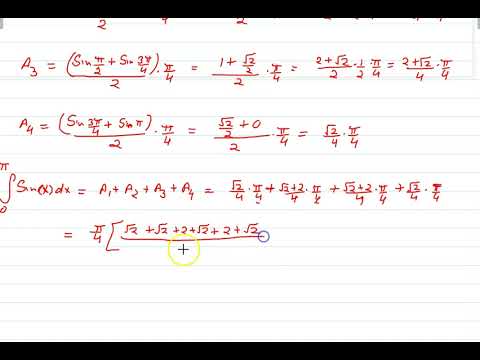 A₃ = (Sin π/2 + Sin 3π/4)/2 · π/4 = (1 + √2/2)/2 · π/4 = (2+√2)/2 · 1/2 π/4 = (2+√2)/4 · π/4
A₄ = (Sin 3π/4 + Sin π)/2 · π/4 = (√2/2 + 0)/2 · π/4 = √2/4 · π/4
∫₀^π Sin(x) dx = A₁ + A₂ + A₃ + A₄ = √2/4 · π/4 + (√2+2)/4 · π/4 + (√2+2)/4 · π/4 + √2/4 · π/4
= π/4 [ (√2 + √2 + 2 + √2 + 2 + √2)/4